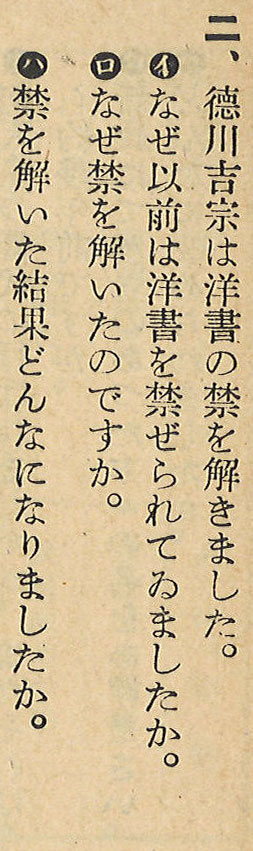 二、德川吉宗は洋書の禁を解きました。
イなぜ以前は洋書を禁ぜられてゐましたか。
ロなぜ禁を解いたのですか。
ハ禁を解いた結果どんなになりましたか。